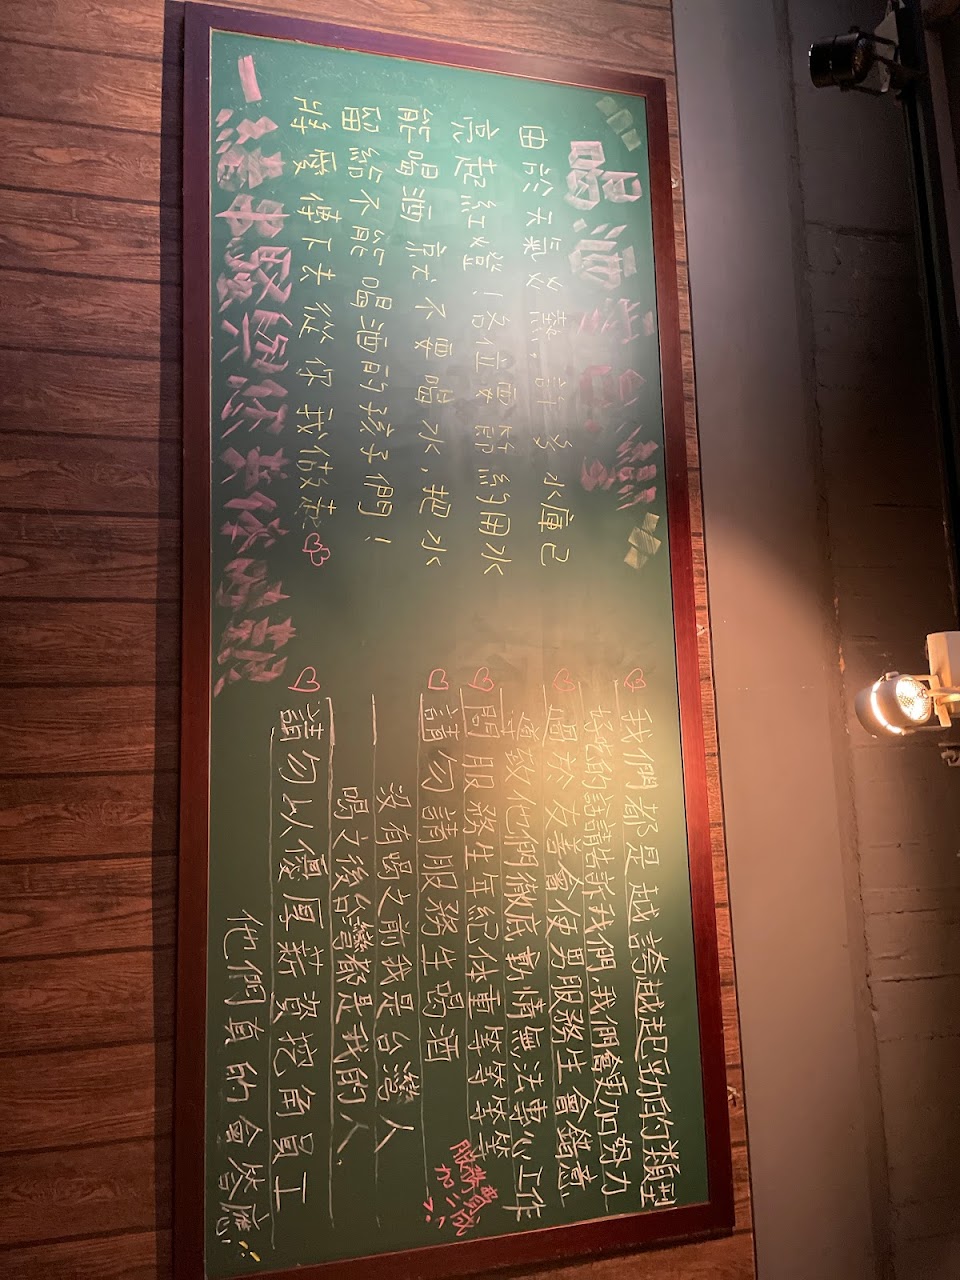 喝酒
由於天氣炎熱,許多水庫已
亮起紅燈!各位要節約用水
能喝酒就不要喝水,把水
留給不能喝酒的孩子們!
將愛傳下去從你我做起
串燒與您共体時艱
我們都是越誇越起勁的類型
好吃的話請告訴我們,我們會更加努力
過於友善會使男服務生會錯意
導致他們徹底動情無法專心工作
問服務生年紀体重等等等等
服務費加三成
請勿請服務生喝酒
沒有喝之前我是台灣人
喝之後台灣都是我的人.
請勿以優厚薪資挖角員工
他們真的會答應